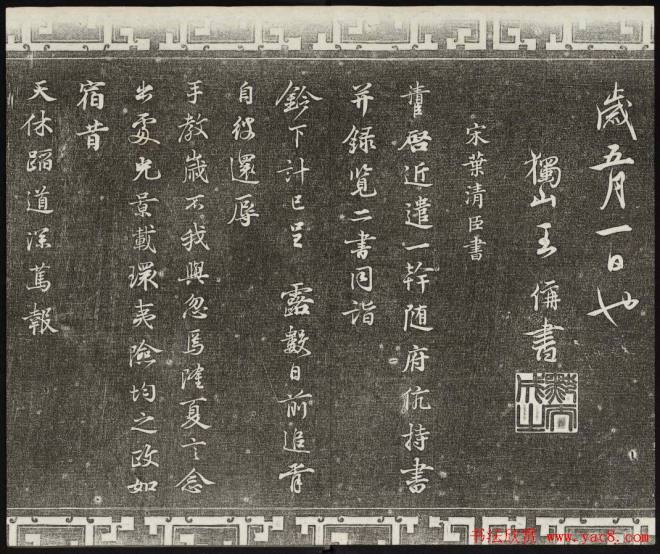 歲五月一日也
獨山王俯書
宋葉清臣書
清臣啓近遣一幹随府伉持書
并録覧二書同詣
鈴下計已呈露數日前追胥
自行還辱
手教歲不我與忽焉隆夏言念
出處光景載環夷險均之政如
宿昔
天休蹈道深篤報
书法欣赏 www.yac8.com